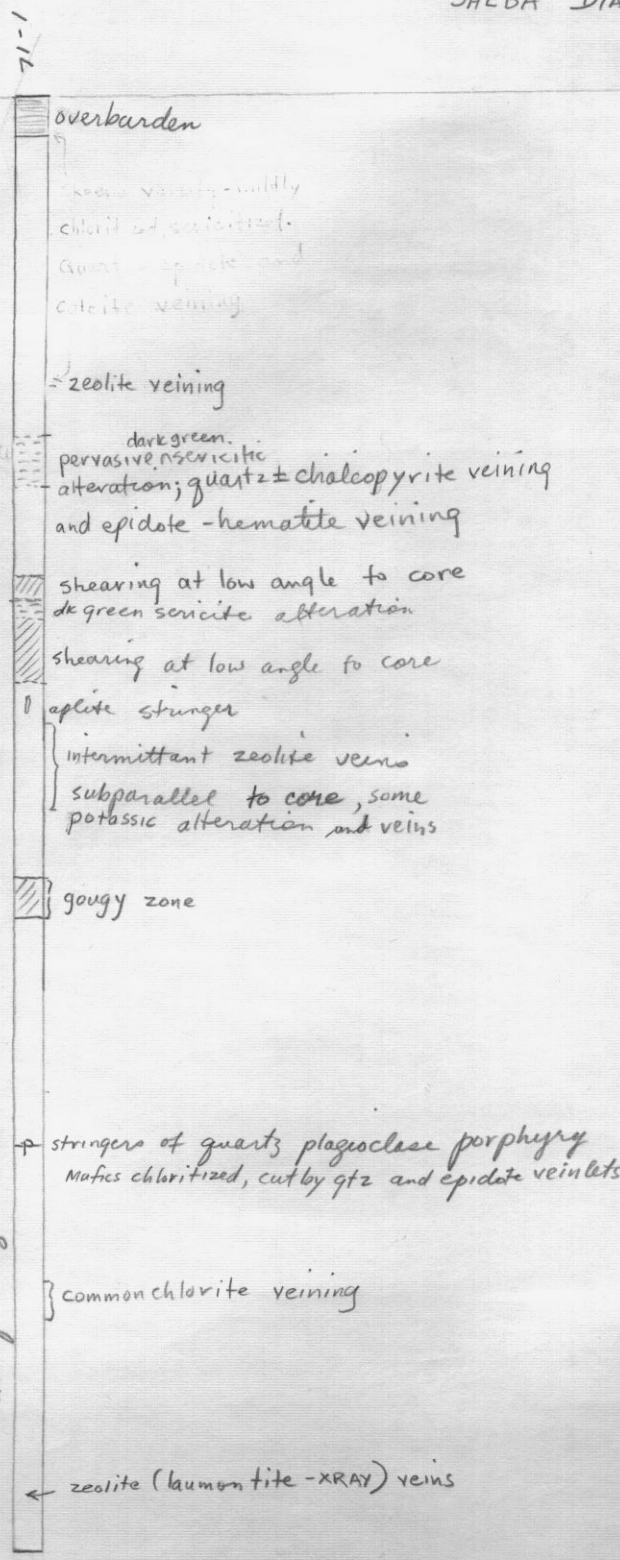 1-12
overburden
chlorit sericitized.
Quart epidote and
calcite veining
zeolite veining
dark green.
pervasive sericitic
alteration; quartz ± chalcopyrite veining
and epidote - hematite veining
shearing at low angle to core
dk green sericite alteration
shearing at low angle to core
aplite stringer
intermittant zeolite veins
subparallel to core, some
potassic alteration and veins
gougy zone
stringers of quartz plagioclase porphyry
Mafics chloritized, cut by qtz and epidote veinlets
common chlorite veining
zeolite (laumontite - XRAY) veins